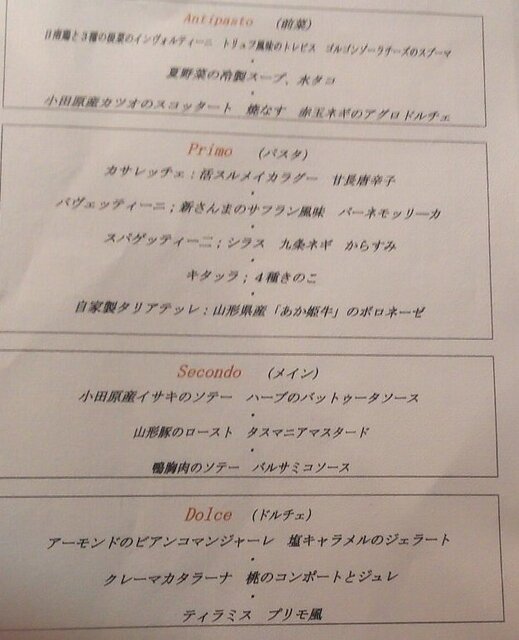 Antipasto （前菜）
日南鶏と3種の根菜のインヴォルティーニ トリュフ風味のトレビス ゴルゴンゾーラチーズのスプーマ
・
夏野菜の冷製スープ、水タコ
・
小田原産カツオのスコッタート 焼なす 赤玉ネギのアグロドルチェ
Primo （パスタ）
カサレッチェ；活スルメイカラグー 甘長唐辛子
・
バヴェッティーニ；新さんまのサフラン風味 パーネモッリーカ
・
スパゲッティーニ；シラス 九条ネギ からすみ
・
キタッラ；４種きのこ
・
自家製タリアテッレ；山形県産「あか姫牛」のボロネーゼ
Secondo （メイン）
小田原産イサキのソテー ハーブのバットゥータソース
・
山形豚のロースト タスマニアマスタード
・
鴨胸肉のソテー バルサミコソース
Dolce （ドルチェ）
アーモンドのビアンコマンジャーレ 塩キャラメルのジェラート
・
クレーマカタラーナ 桃のコンポートとジュレ
・
ティラミス プリモ風